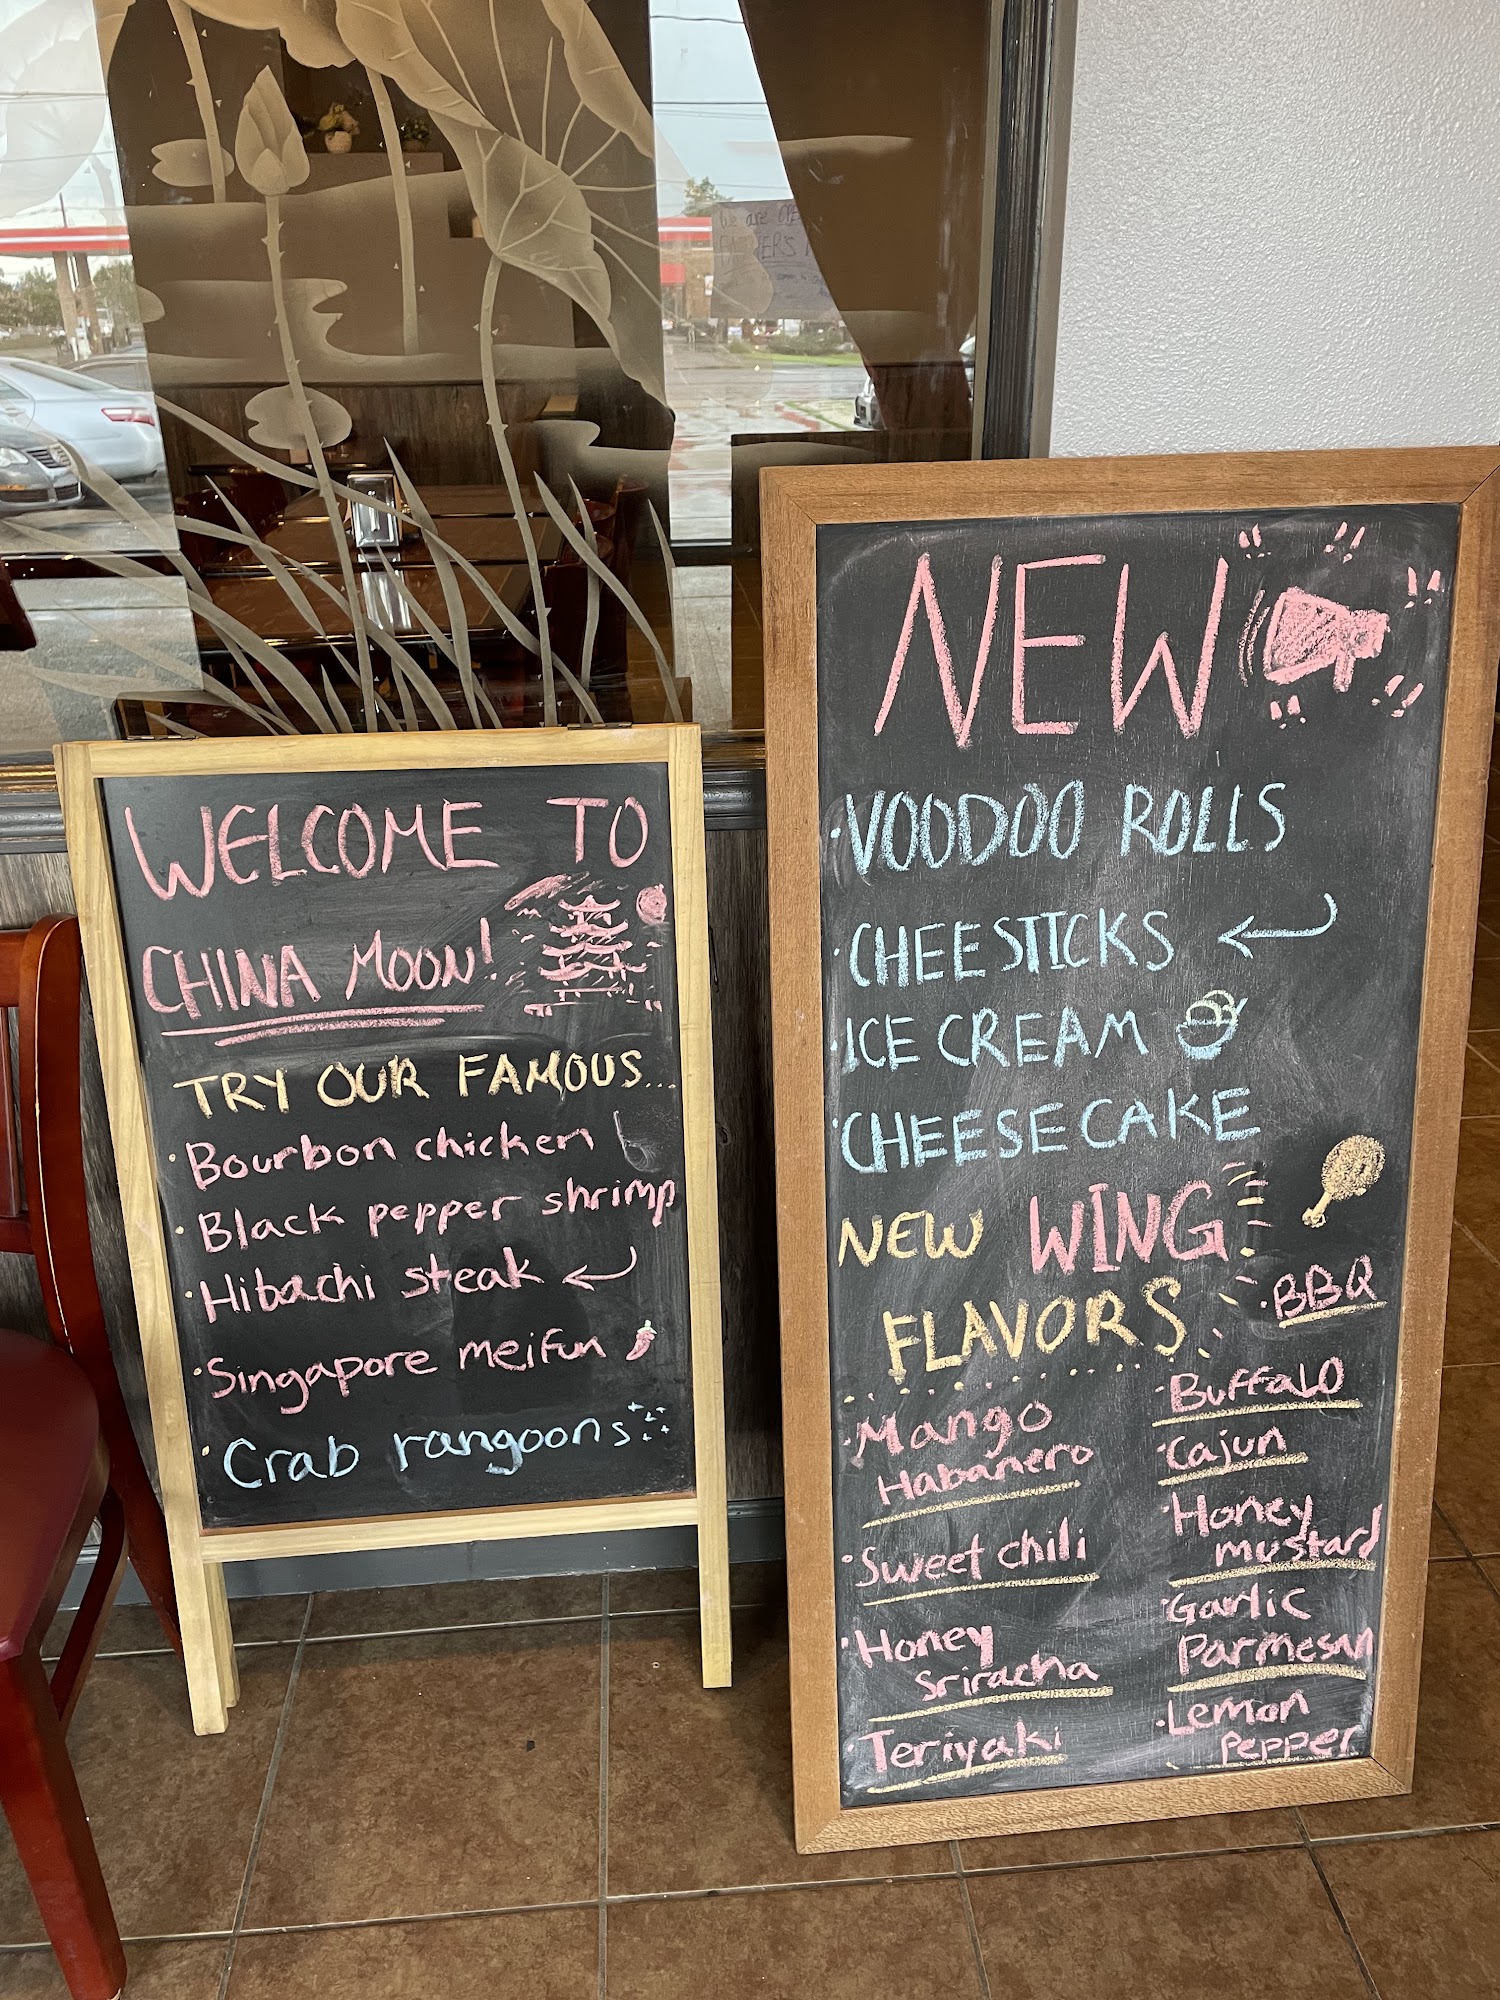 WELCOME TO
CHINA MOON!
TRY OUR FAMOUS...
· Bourbon chicken
· Black pepper shrimp
· Hibachi steak
· Singapore meifun
· Crab rangoons
NEW
· VOODOO ROLLS
· CHEESTICKS
· ICE CREAM
· CHEESECAKE
NEW WING
FLAVORS
· Mango
Habanero
· Sweet chili
· Honey
Sriracha
· Teriyaki
· BBQ
· Buffalo
· Cajun
· Honey
mustard
· Garlic
Parmesan
· Lemon
Pepper
We are OPE